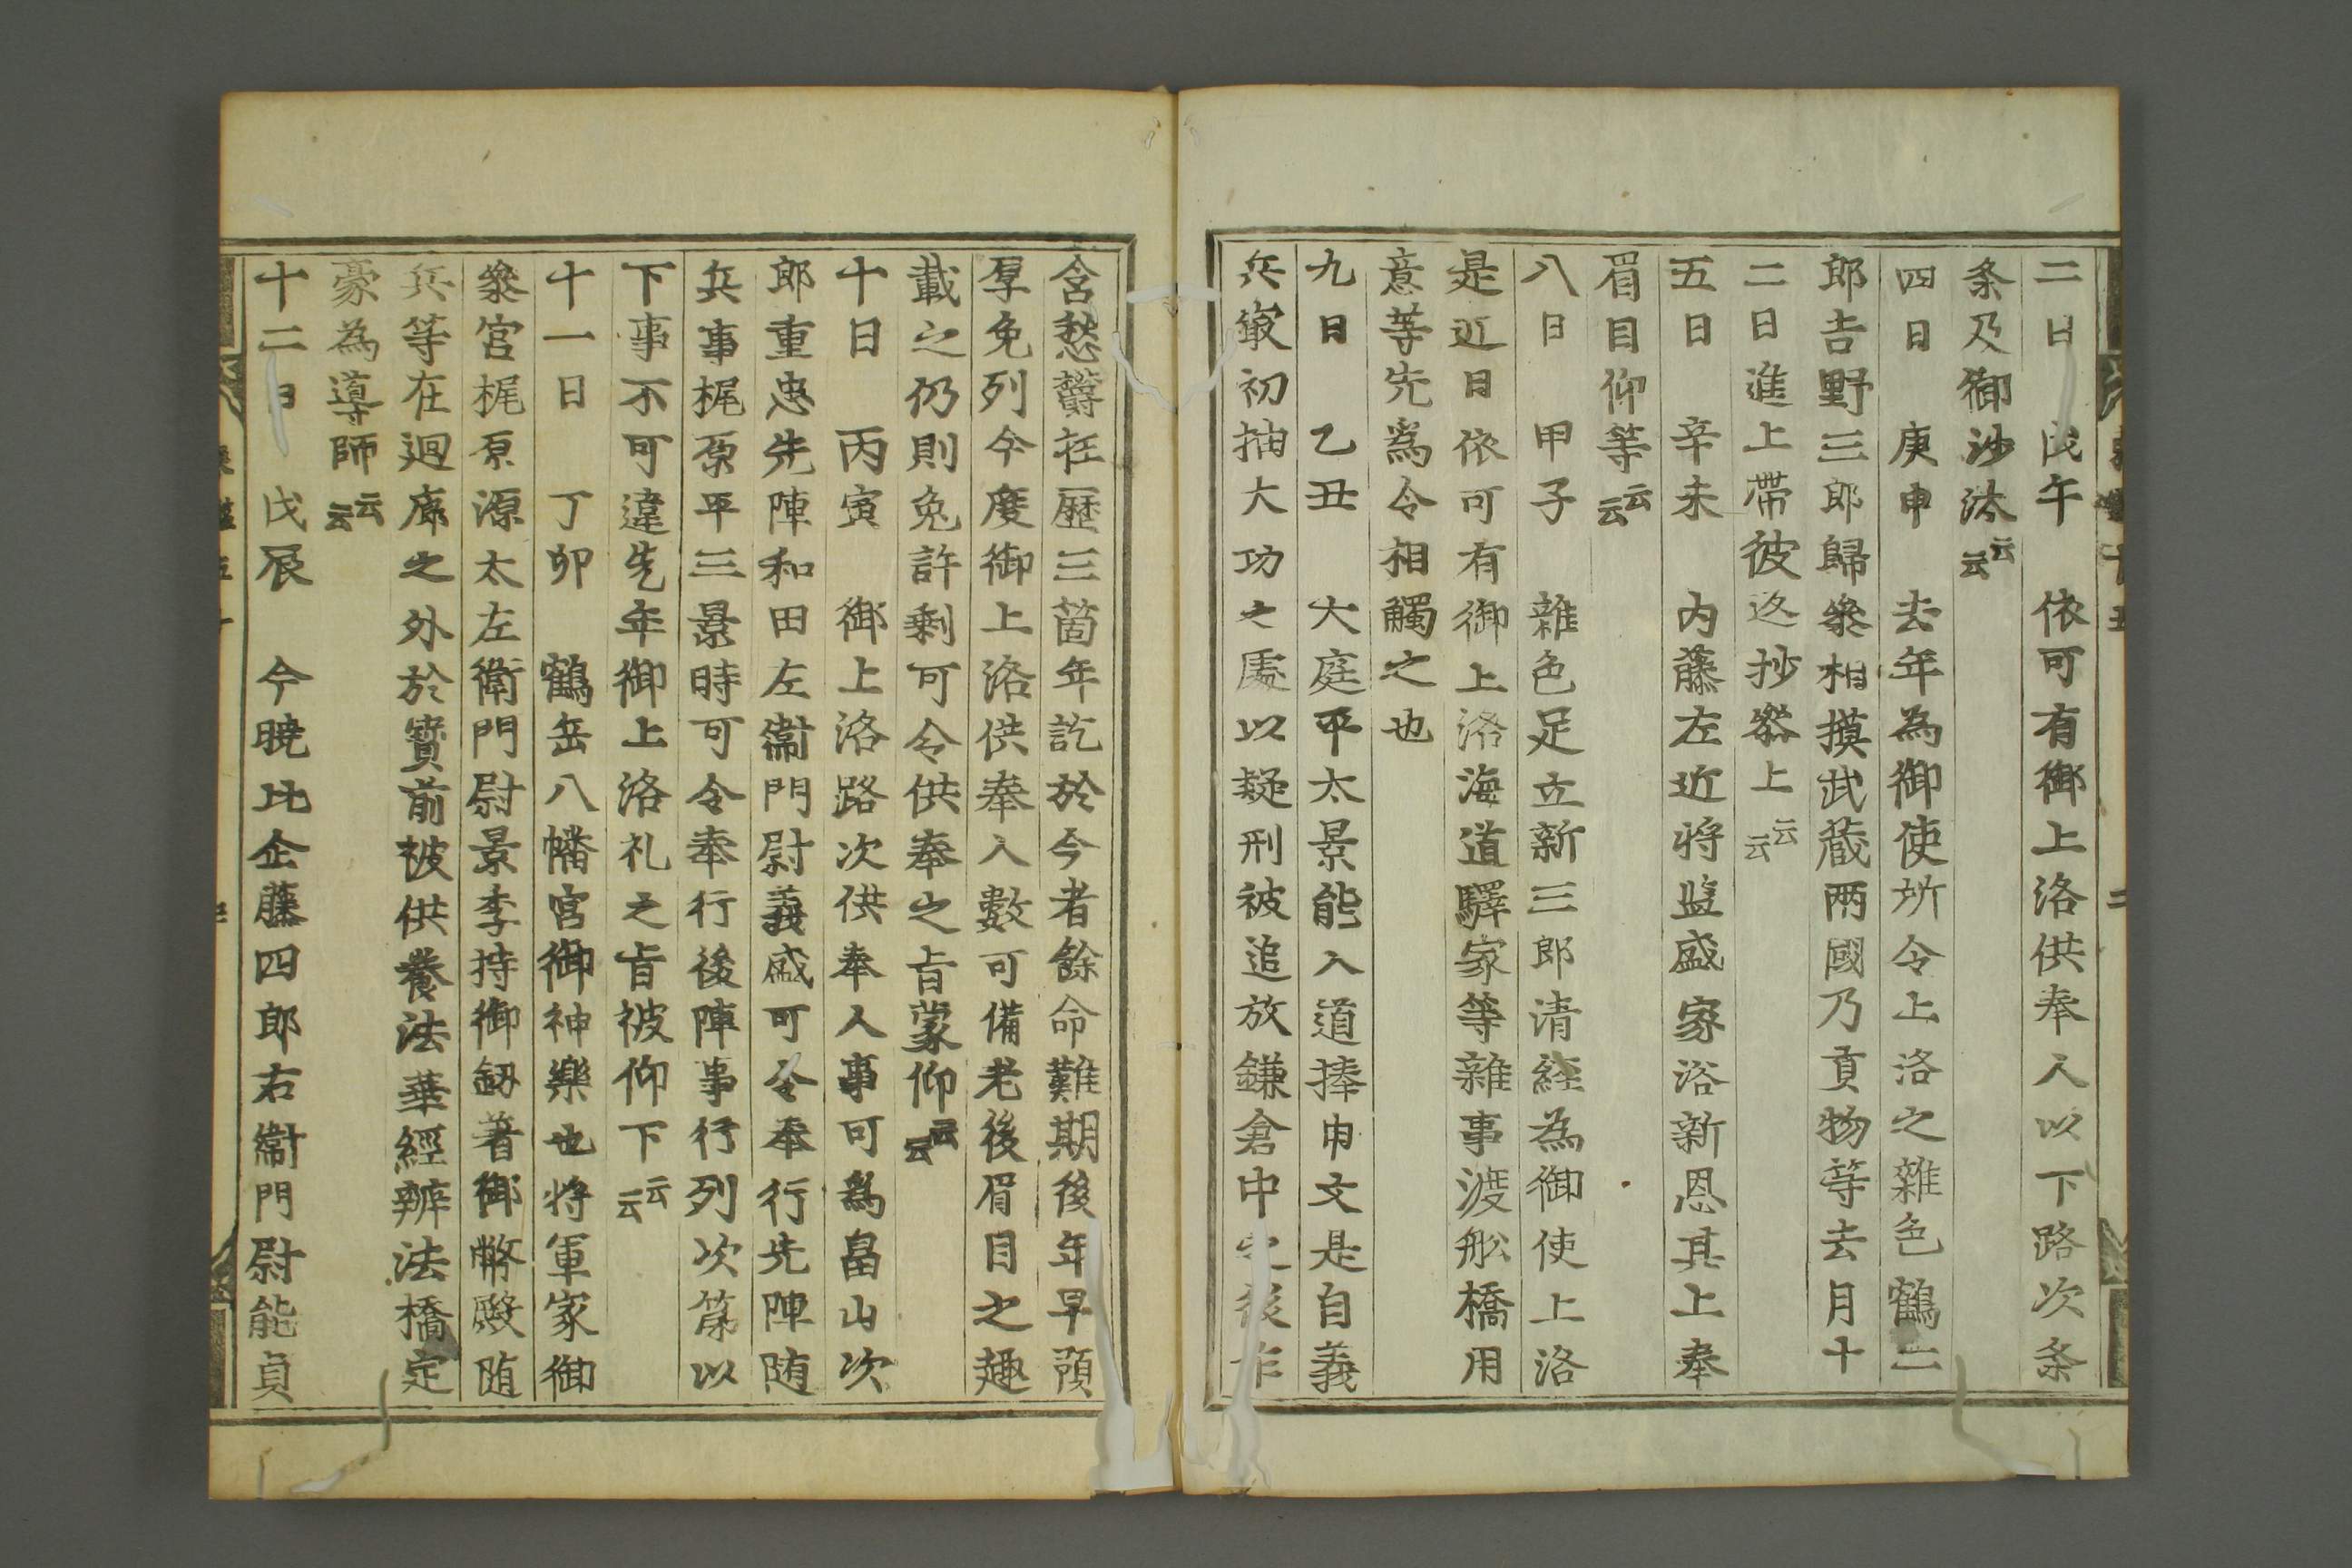 二日　戊午　依可有御上洛供奉人以下路次条
条及御沙汰云云
四日　庚申　去年為御使所令上洛之雜色鶴二
郎吉野三郎歸參相摸武藏両國乃貢物等去月十
二日進上帶彼返抄參上云云
五日　辛未　内藤左近将監盛家浴新恩其上奉
眉目仰等云云
八日　甲子　雜色足立新三郎清経為御使上洛
是近日依可有御上洛海道驛家等雜事渡舩橋用
意等先爲令相觸之也
九日　乙丑　大庭平太景能入道捧申文是自義
兵㝡初抽大功之處以疑刑被追放鎌倉中之後乍
含愁欝在歴三箇年訖於今者餘命難期後年早預
厚免列今度御上洛供奉人數可備老後眉目之趣
載之仍則免許剩可令供奉之旨蒙仰云云
十日　丙寅　御上洛路次供奉人事可爲畠山次
郎重忠先陣和田左衞門尉義盛可令奉行先陣随
兵事梶原平三景時可令奉行後陣事行列次第以
下事不可違先年御上洛礼之旨被仰下云云
十一日　丁卯　鶴岳八幡宮御神樂也将軍家御
參宮梶原源太左衛門尉景季持御釼著御幣殿随
兵等在廻廊之外於寳前被供養法華經辨法橋定
豪為導師云云
十二日　戊辰　今曉比企藤四郎右衞門尉能貟